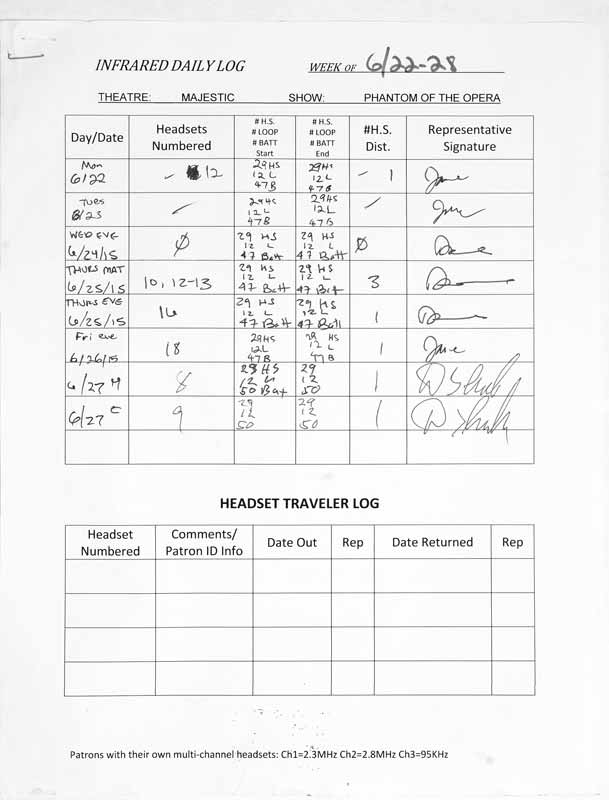 INFRARED DAILY LOG WEEK OF 6/22-28
THEATRE: MAJESTIC SHOW: PHANTOM OF THE OPERA
Day/Date Headsets Numbered # H.S. # LOOP # BATT Start # H.S. # LOOP # BATT End #H.S. Dist. Representative Signature
Mon 6/22 – 12 29HS 12 L 47B 29HS 12 L 47B – 1 Jane
TUES 6/23 – 29HS 12 L 47B 29HS 12 L 47B –
WED EVE 6/24/15 Ø 29 HS 12 L 47 Batt 29 HS 12 L 47 Batt Ø
THURS MAT 6/25/15 10, 12-13 29 HS 12 L 47 Batt 29 HS 12 L 47 Bat 3
THURS EVE 6/25/15 16 29 HS 12 L 47 Batt 29 HS 12 L 47 Batt 1
Fri eve 6/26/15 18 29HS 12L 47B 29 HS 12 L 47 B 1 Jane
6/27 M 8 12 50 Bat 29 12 50 1
6/27 E 9 29 12 50 29 12 50 1
HEADSET TRAVELER LOG
Headset Numbered Comments/ Patron ID Info Date Out Rep Date Returned Rep
Patrons with their own multi-channel headsets: Ch1=2.3MHz Ch2=2.8MHz Ch3=95KHz